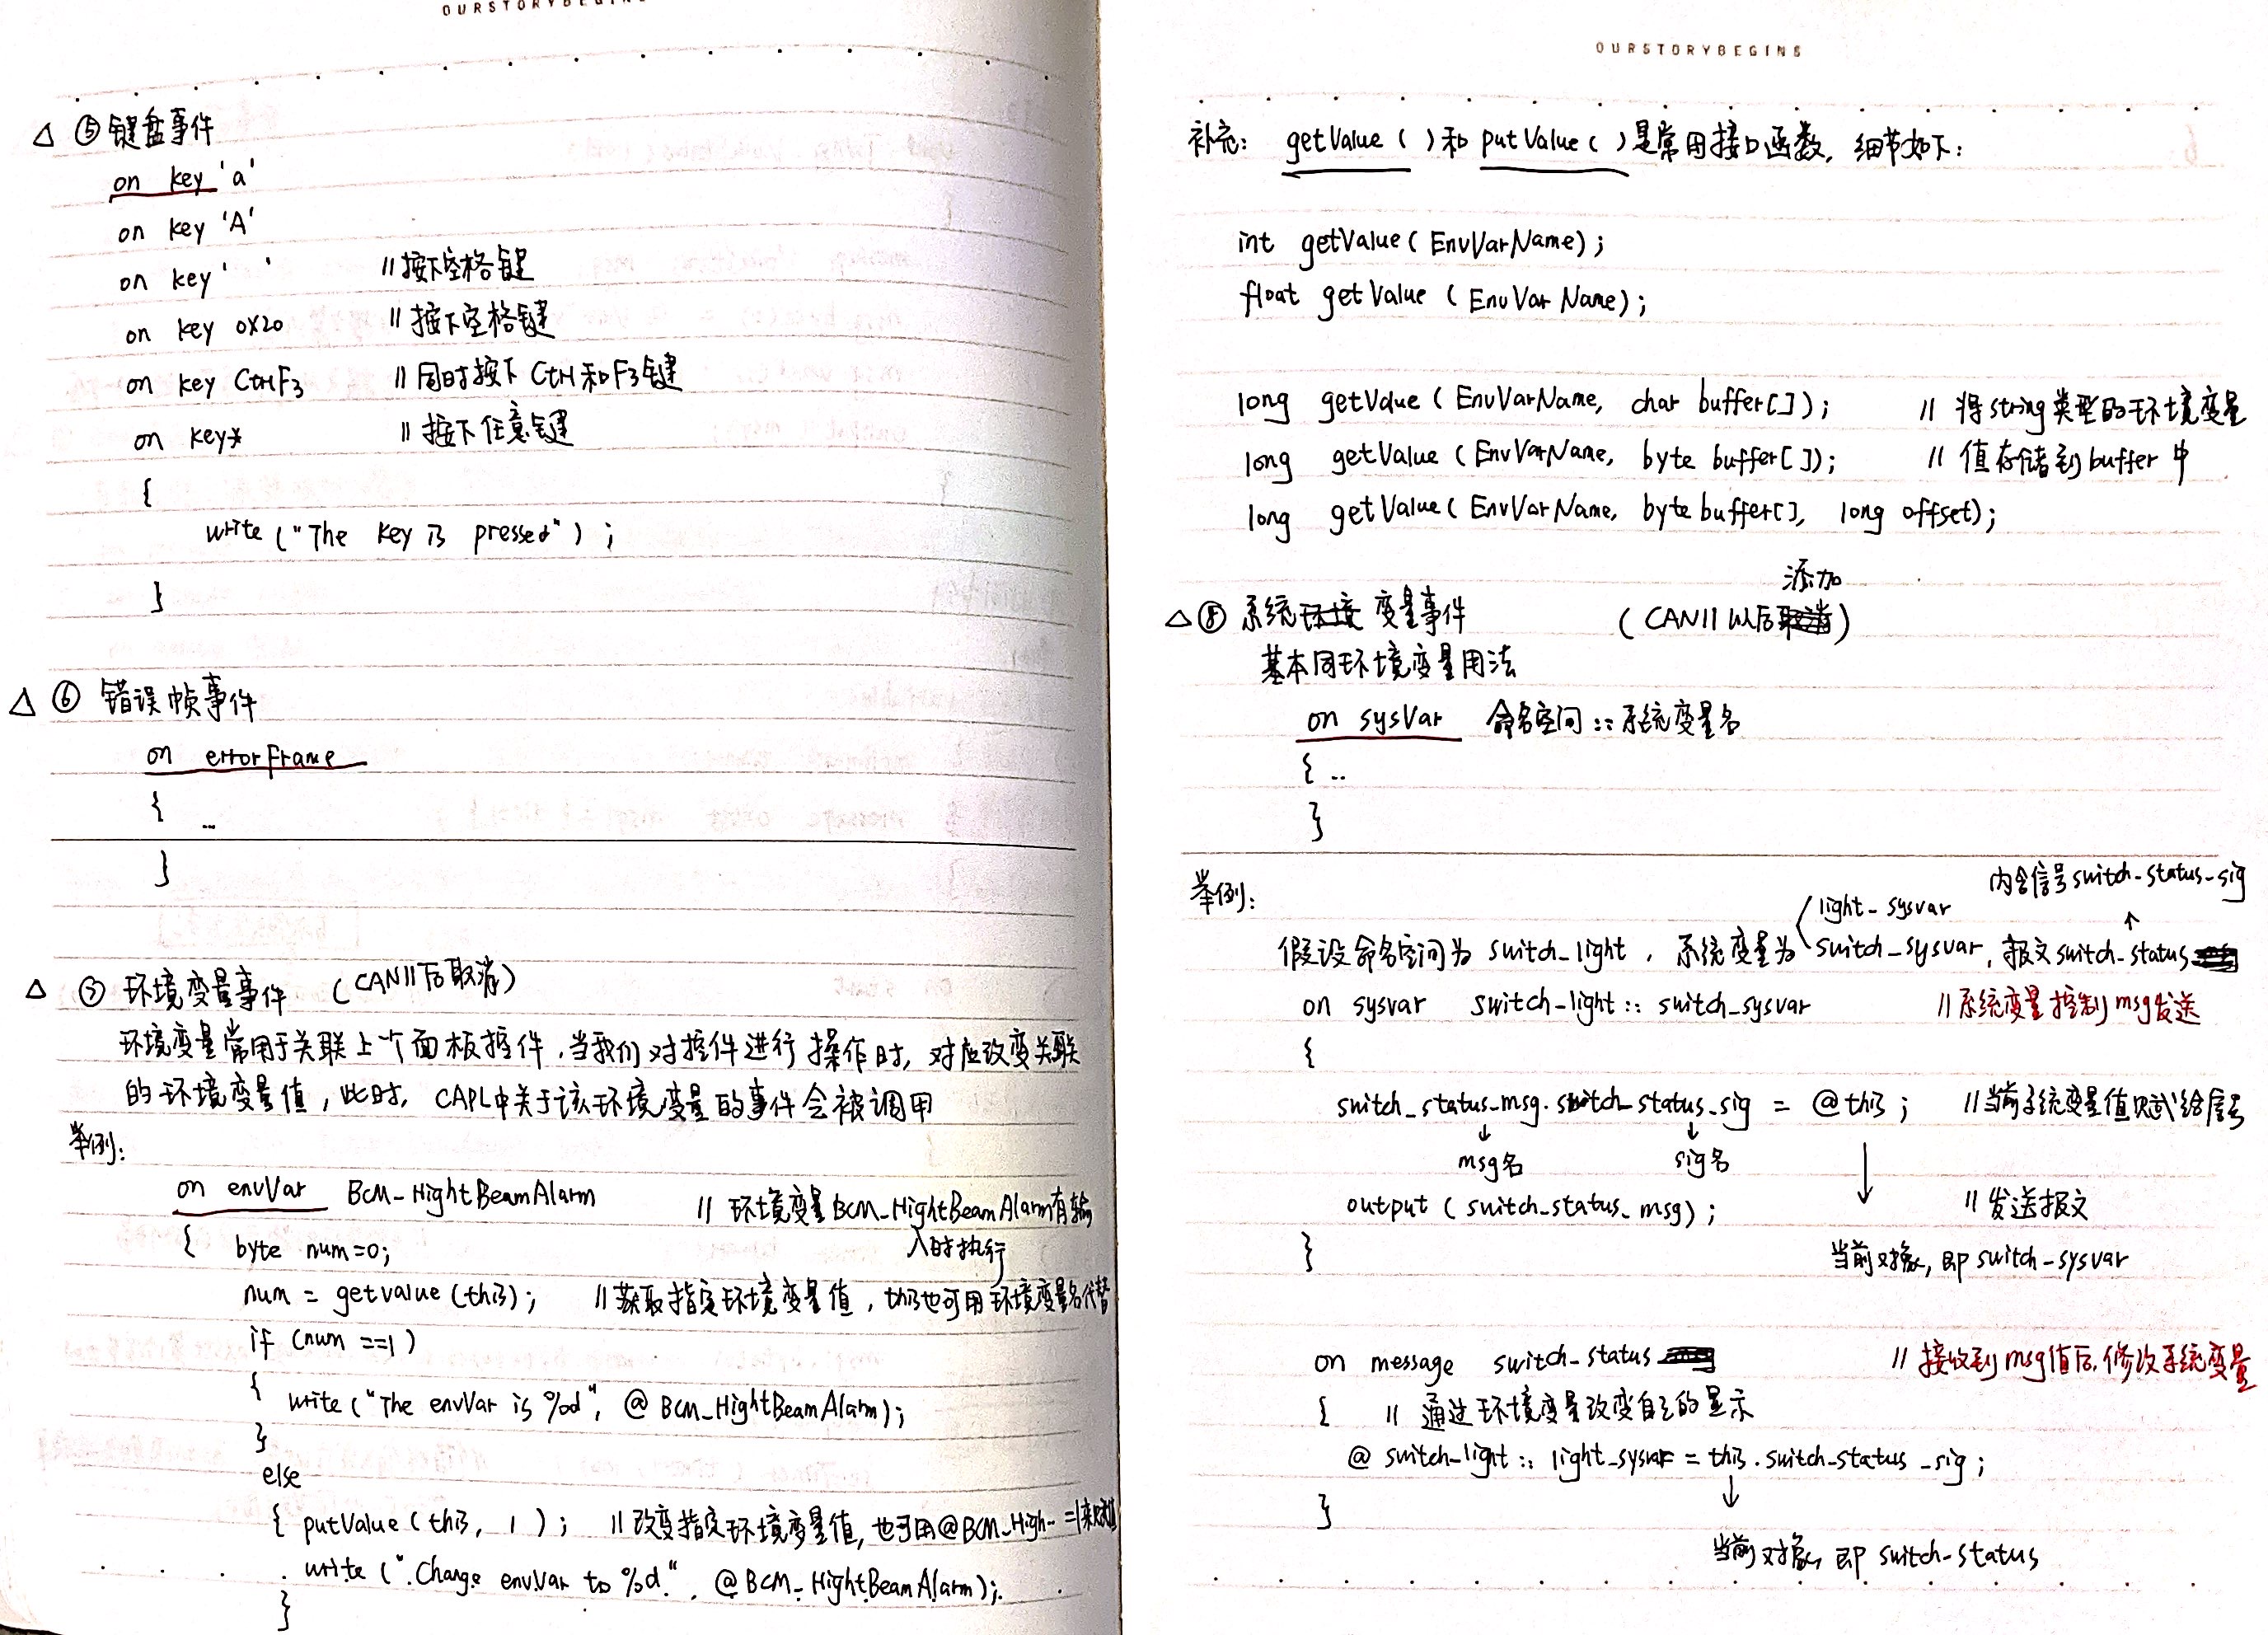 OURSTORYBEGINS
△ ⑤ 键盘事件
on key 'a'
on key 'A'
on key ' ' //按下空格键
on key 0X20 //按下空格键
on key CtrlF3 //同时按下Ctrl和F3键
on key* //按下任意键
{
write ("The key is pressed");
}
△ ⑥ 错误帧事件
on errorFrame
{
...
}
△ ⑦ 环境变量事件 (CAN11后取消)
环境变量常用于关联上个面板控件,当我们对控件进行操作时,对应改变关联
的环境变量值,此时,CAPL中关于该环境变量的事件会被调用
举例:
on envVar BCM_HightBeamAlarm //环境变量BCM_HightBeamAlarm有输
入时执行
{ byte num=0;
num = getvalue(this); //获取指定环境变量值,this也可用环境变量名代替
if (num ==1)
{
write("The envVar is %d", @BCM_HightBeamAlarm);
}
else
{ putValue(this, 1); //改变指定环境变量值,也可用@BCM_High-=1来赋值
write("Change envVar to %d", @BCM_HightBeamAlarm);
}
OURSTORYBEGINS
补充: getValue()和putValue()是常用接口函数,细节如下:
int getValue(EnvVarName);
float getValue(EnvVarName);
long getValue(EnvVarName, char buffer[]); //将string类型的环境变量
long getValue(EnvVarName, byte buffer[]); //值存储到buffer中
long getValue(EnvVarName, byte buffer[], long offset);
添加
△ ⑧ 系统环境变量事件 (CAN11以后取消)
基本同环境变量用法
on sysVar 命名空间::系统变量名
{ ..
}
举例:
内含信号switch-status-sig
light-sysvar
假设命名空间为switch_light,系统变量为switch_sysvar,报文switch-status
on sysvar switch-light::switch_sysvar //系统变量控制msg发送
{
switch_status_msg.switch_status_sig = @this; //当前系统变量值赋给信号
msg名 sig名
output(switch_status_msg); //发送报文
} 当前对象,即switch-sysvar
on message switch-status //接收到msg值后,修改系统变量
{ //通过环境变量改变自己的显示
@switch-light::light_sysvar = this.switch-status_sig;
}
当前对象,即switch-status